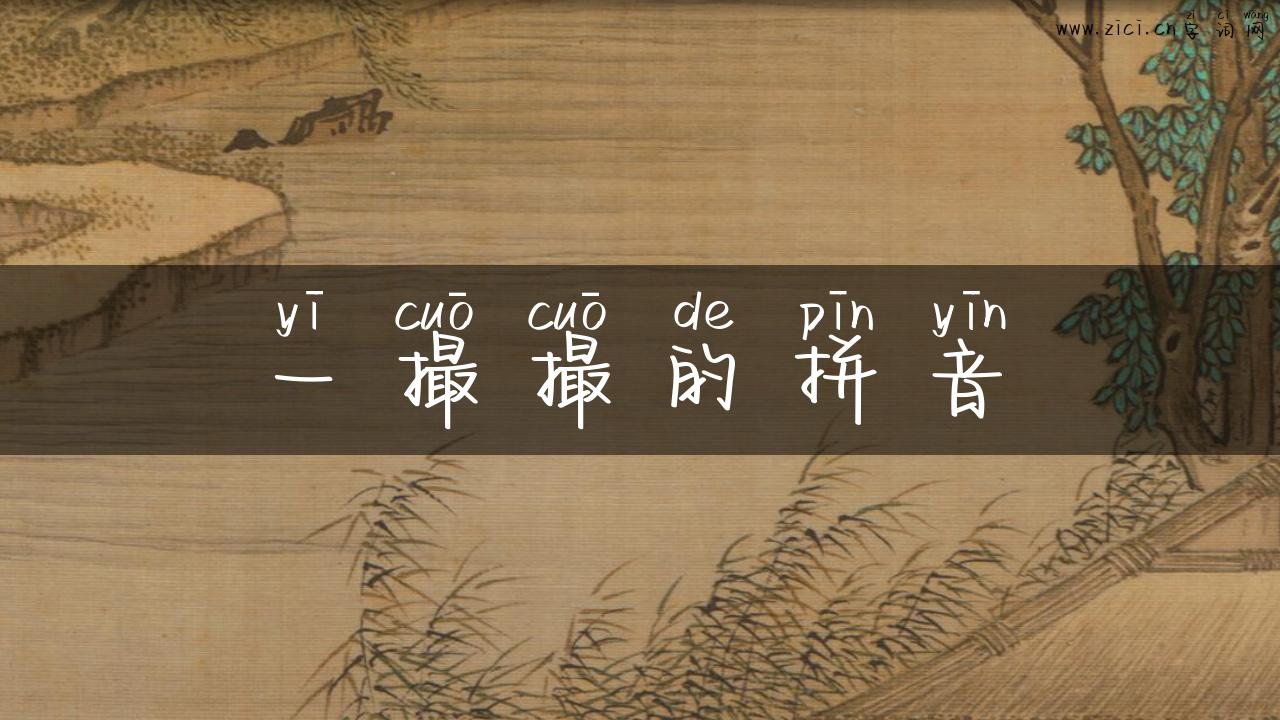 zì cí wǎng
www.zici.cn字词网
yī cuō cuō de pīn yīn
一撮撮的拼音